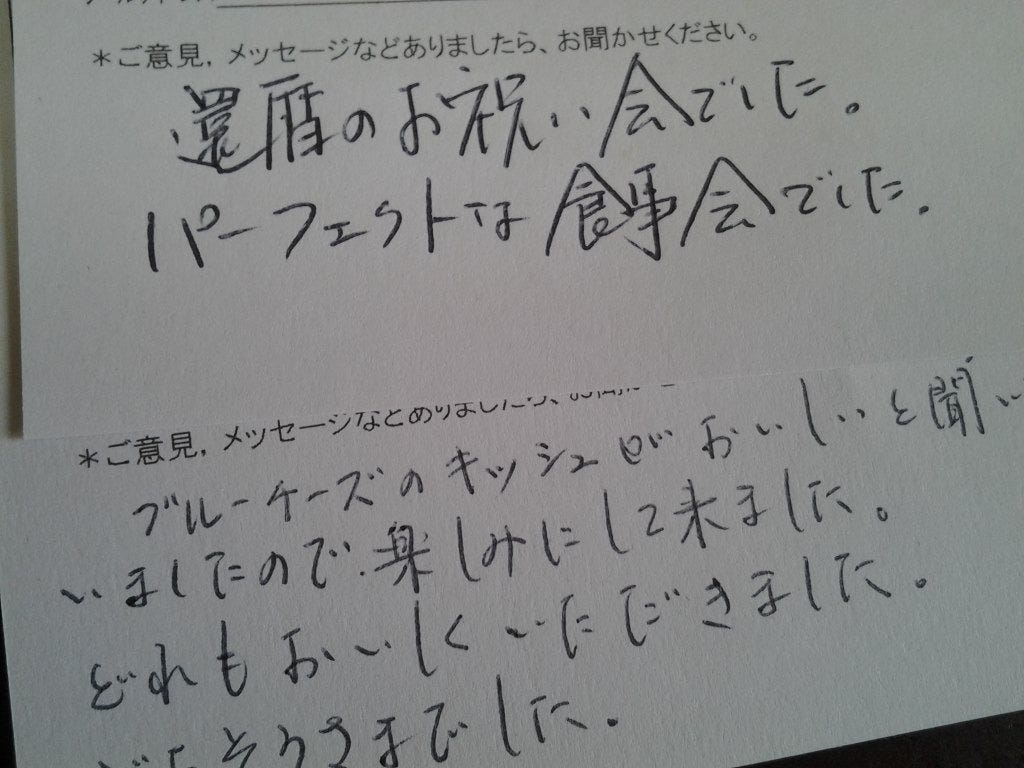 *ご意見，メッセージなどありましたら、お聞かせください。
還暦のお祝い会でした。
パーフェクトな食事会でした。
*ご意見，メッセージなどありましたら、お聞
ブルーケーズのキッシュがおいしいと聞い
いましたので、楽しみにして来ました。
どれもおいしくいただきました。
ごちそうさまでした。